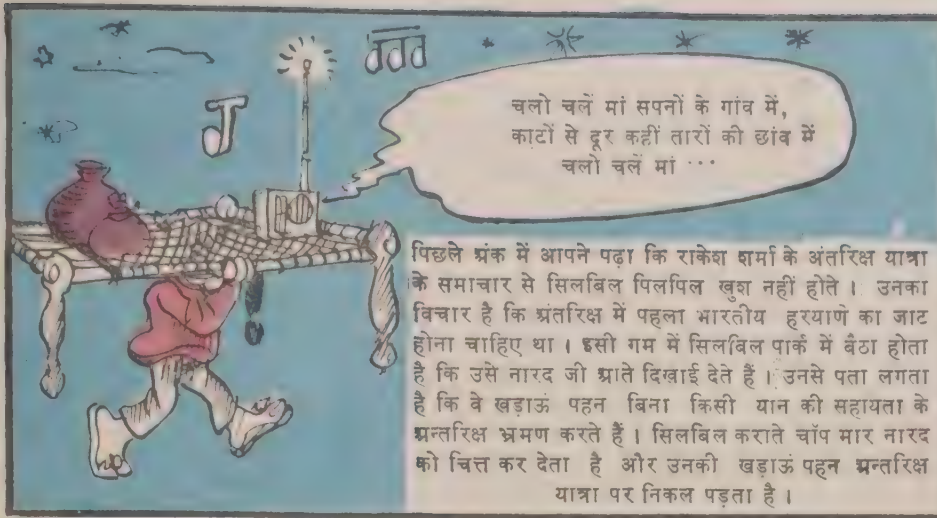 चलो चलें मां सपनों के गांव में,
काटों से दूर कहीं तारों की छांव में
चलो चलें मां ...
पिछले अंक में आपने पढ़ा कि राकेश शर्मा के अंतरिक्ष यात्रा
के समाचार से सिलबिल पिलपिल खुश नहीं होते। उनका
विचार है कि अंतरिक्ष में पहला भारतीय हरयाणे का जाट
होना चाहिए था। इसी गम में सिलबिल पार्क में बैठा होता
है कि उसे नारद जी आते दिखाई देते हैं। उनसे पता लगता
है कि वे खड़ाऊं पहन बिना किसी यान की सहायता के
अन्तरिक्ष भ्रमण करते हैं। सिलबिल कराते चॉप मार नारद
को चित्त कर देता है और उनकी खड़ाऊं पहन अन्तरिक्ष
यात्रा पर निकल पड़ता है।